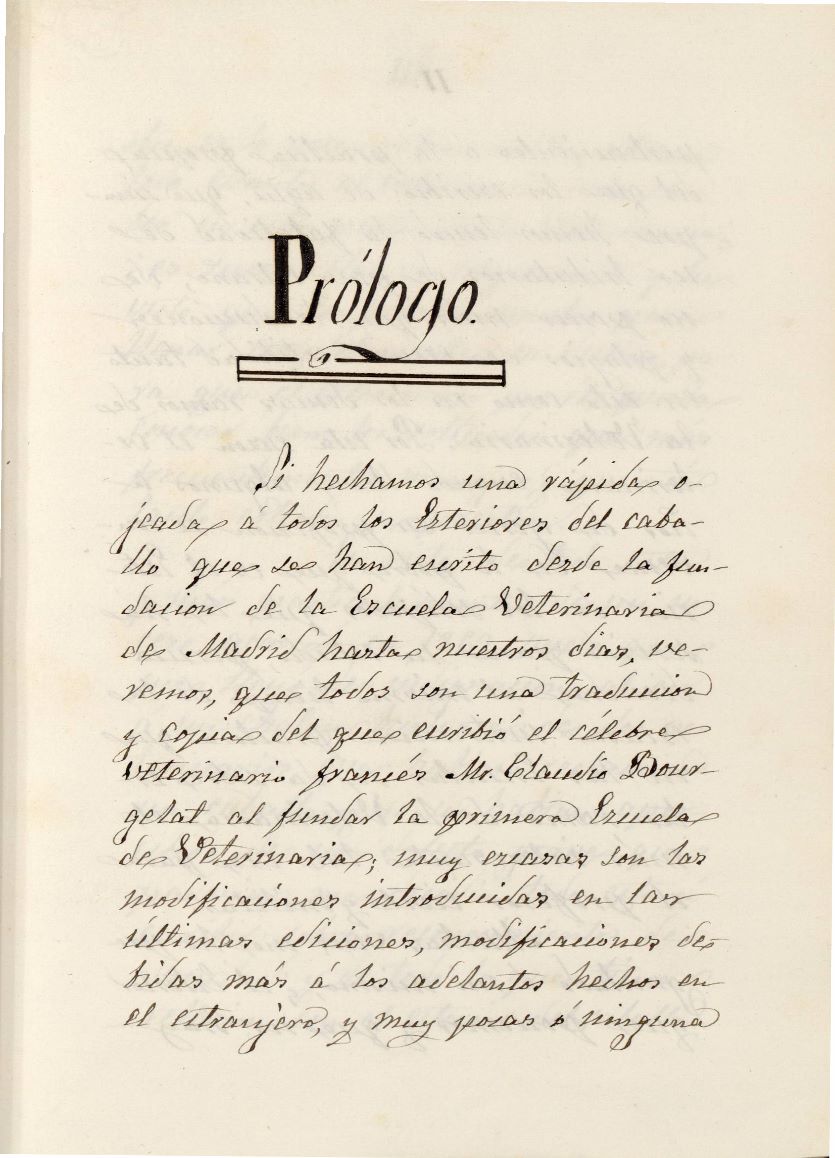 Prólogo.
Si hechamos una rápida o-
jeada á todos los Esteriores del caba-
llo que se han escrito desde la fun-
dacion de la Escuela Veterinaria
de Madrid hasta nuestros dias, ve-
remos, que todos son una traduccion
y copia del que escribió el célebre
veterinario francés Mr. Claudio Bour-
gelat al fundar la primera Escuela
de Veterinaria; muy escasas son las
modificaciones introducidas en las
últimas ediciones, modificaciones de-
bidas más á los adelantos hechos en
el estranjero, y muy pocas ó ninguna